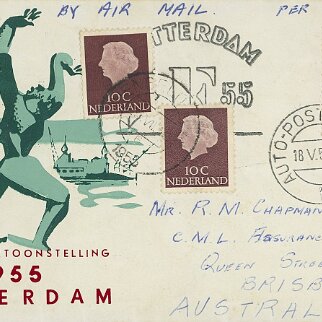 BY AIR MAIL. PER
TTERDAM
55
10 C
NEDERLAND
10 C
NEDERLAND
AUTO-POST
18 V
1955
TOONSTELLING
955
ERDAM
MR. R. M. CHAPMAN
C. M. L. ASSURANCE
QUEEN STRE
BRISB
AUSTRAL